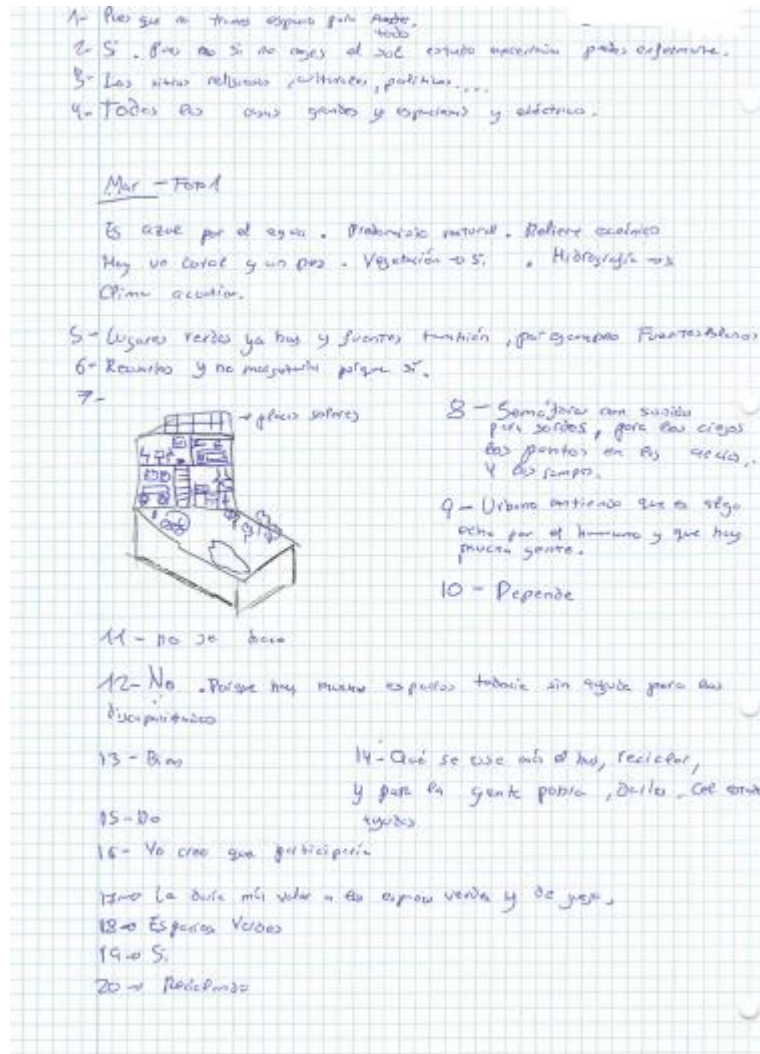 1- Pues que no tienes espacio para
todo
2- Si. Pues no si no coges el sol
3- Los sitios religiosos, culturales, políticos....
4- Todos las casas grandes y espaciosas y eléctricas.
Mar - Foto 1
Es azul por el agua. Predominio natural. Relieve
Hay un coral y un pez. Vegetación → Si. . Hidrografía →
Clima
5- Lugares verdes ya hay y fuentes también, por ejemplo Fuentes
6- y no porque si.
7-
→ placas solares
8- Semáforos con sonido
para sordos, para los ciegos
los puntos en las
Y las rampas.
9- Urbano entiendo que es algo
echo por el humano y que hay
mucha gente.
10- Depende
11- no se
12- No. Porque hay espacios todavía sin ayuda para los
13- Bien
14- Qué se use más el bus, reciclar,
y para la gente pobre, Darles
ayudas
15- No
16- Yo creo que participaría
17→ La daría más valor a los verdes y de juego.
18→ Espacios Verdes
19→ Si
20→ Reciclando